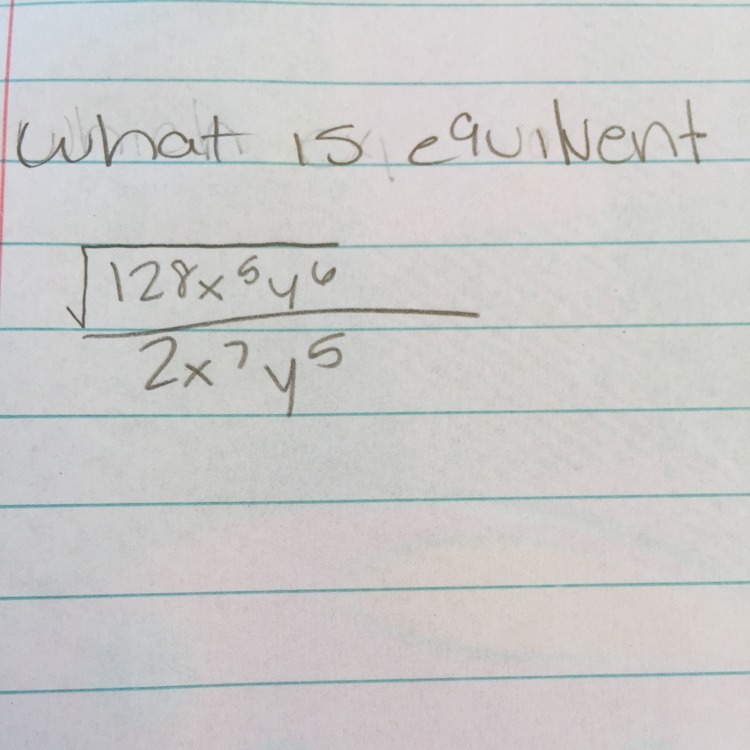 What is equivilent
√128x⁵y⁶
2x⁷y⁵